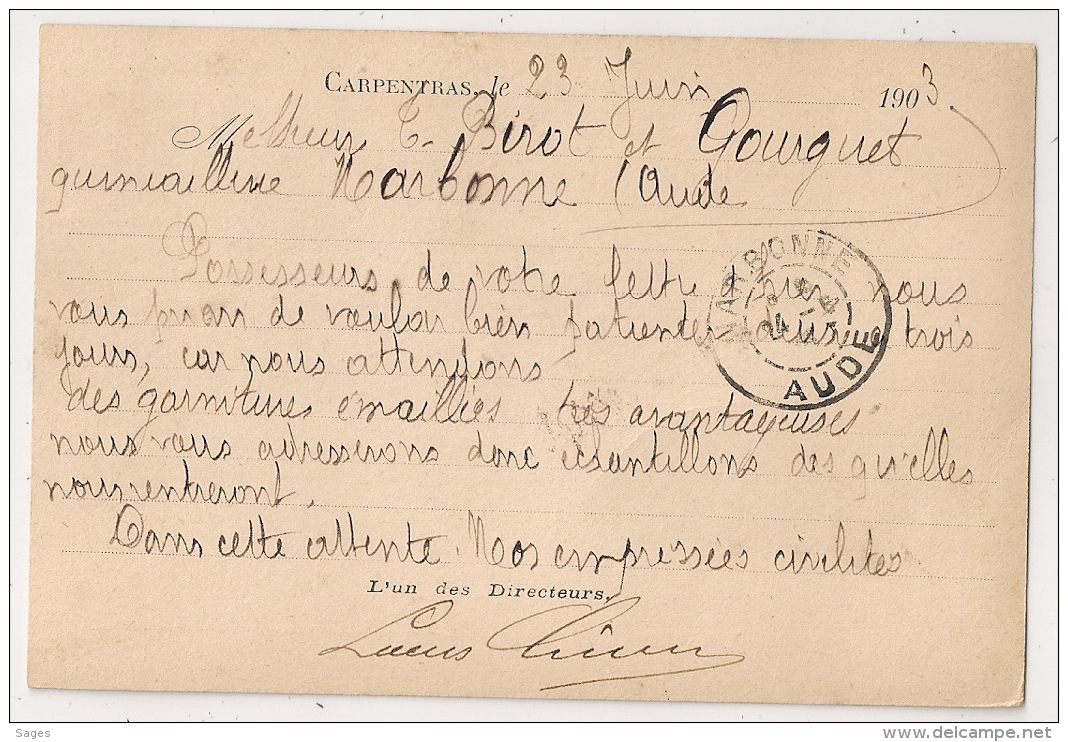 CARPENTRAS, le 23 Juin 1903
Messieurs T. Birot et Gourguet
quincaillerie Narbonne (Aude
Possesseurs de votre lettre d'hier nous
vous prion de vouloir bien patienter deux, trois
jours, car nous attendons
des garnitures émaillées très avantageuses
nous vous adresserons donc échantillons des qu'elles
nous rentreront.
Dans cette attente. Nos empressées civilités
L'un des Directeurs,
NARBONNE
24
AUDE
Sages
delcampe.net